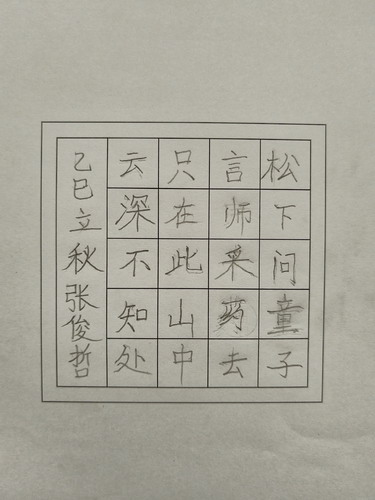 松下问童子
言师采药去
只在此山中
云深不知处
乙巳立秋张俊哲